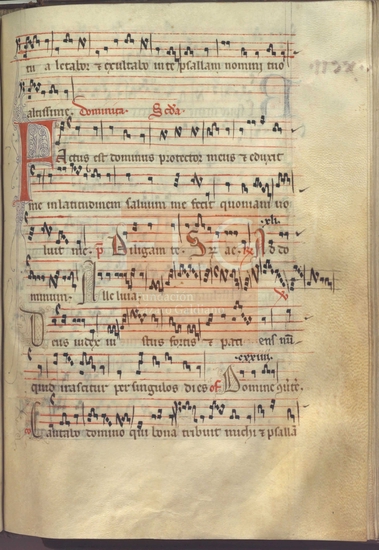 tu a letabor et exultabo in te psallam nomini tuo
altissime. Dominica. Scda.
Factus est dominus protector meus et eduxit
me in latitudinem saluum me fecit quoniam uo
.xli.
luit me. p̄ Diligam te. Gr̄ ac. Ad do
minum. Alleluia.
Deus iudex iu stus fortis et pati ens nū
.cxxiii.
quid irascitur per singulos dies of Domine
co Cantabo domino qui bona tribuit michi et psallā